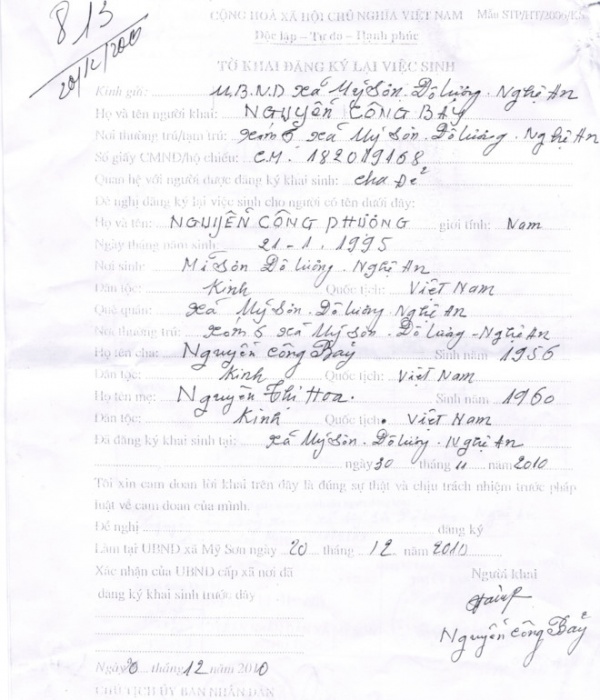 813
20/12/2010
CỘNG HOÀ XÃ HỘI CHỦ NGHĨA VIỆT NAM Mẫu STP/HT/2006
Độc lập – Tự do – Hạnh phúc
TỜ KHAI ĐĂNG KÝ LẠI VIỆC SINH
Kính gửi: U.B.N.D xã Mỹ Sơn. Đô lương. Nghệ An
Họ và tên người khai: NGUYỄN CÔNG BẢY
Nơi thường trú/tạm trú: xóm 5 xã Mỹ Sơn. Đô lương. Nghệ An
Số giấy CMND/hộ chiếu: C.M. 182019168
Quan hệ với người được đăng ký khai sinh: cha Đẻ
Đề nghị đăng ký lại việc sinh cho người có tên dưới đây:
Họ và tên: NGUYỄN CÔNG PHƯỢNG giới tính: Nam
Ngày tháng năm sinh: 21-1.1995
Nơi sinh: Mĩ Sơn Đô lương. Nghệ An
Dân tộc: Kinh Quốc tịch: Việt Nam
Quê quán: xã Mỹ Sơn. Đô lương. Nghệ An
Nơi thường trú: xóm 5 xã Mỹ Sơn. Đô lương - Nghệ An
Họ tên cha: Nguyễn Công Bảy Sinh năm 1956
Dân tộc: Kinh Quốc tịch: Việt Nam
Họ tên mẹ: Nguyễn Thị Hoa. Sinh năm 1960
Dân tộc: Kinh Quốc tịch: Việt Nam
Đã đăng ký khai sinh tại: xã Mỹ Sơn. Đô lương. Nghệ An
ngày 30 tháng 11 năm 2010
Tôi xin cam đoan lời khai trên đây là đúng sự thật và chịu trách nhiệm trước pháp
luật về cam đoan của mình.
Đề nghị đăng ký
Làm tại UBND xã Mỹ Sơn ngày 20 tháng 12 năm 2010
Xác nhận của UBND cấp xã nơi đã Người khai
đăng ký khai sinh trước đây
Nguyễn Công Bảy
Ngày 20 tháng 12 năm 2010
CHỦ TỊCH ỦY BAN NHÂN DÂN